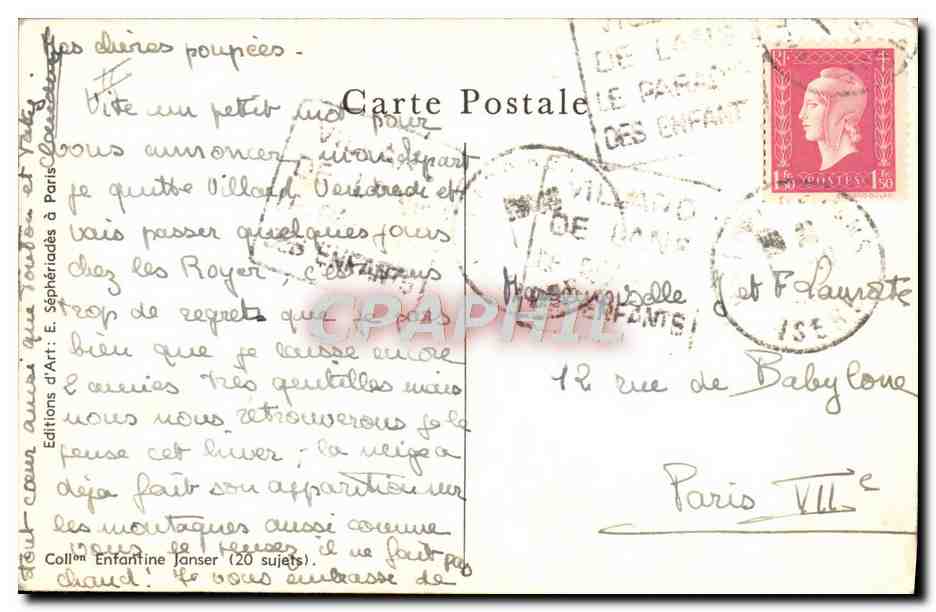 Mes chères poupées -
Vite un petit mot pour
vous annoncer mon départ
je quitte Villard Vendredi et
vais passer quelques jours
chez les Royer, c'est sans
trop de regrets que je pars
bien que je laisse encore
2 amies très gentilles mais
nous nous retrouverons je le
pense cet hiver, la neige a
déjà fait son apparition sur
les montagnes aussi comme
vous le pensez il ne fait pas
chaud! Je vous embrasse de
tout cœur ainsi que Tonton et Tatie
Carte Postale
Editions d'Art: E. Séphériadès à Paris
Coll^on Enfantine Janser (20 sujets).
RF
1 Fr. 50 POSTES 1 Fr. 50
DE LANS
LE PARADIS
DES ENFANTS
VILLARD
DE LANS
DES ENFANTS
ISERE
J et F Laurate
12 rue de Babylone
Paris VII^e
CPAPHIL